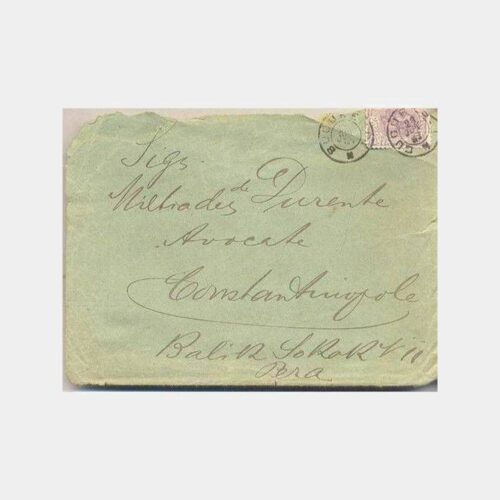 Sigr.
Miltiades de Durente
Avocate
Constantinople
Balik Sokak N 11
Pera